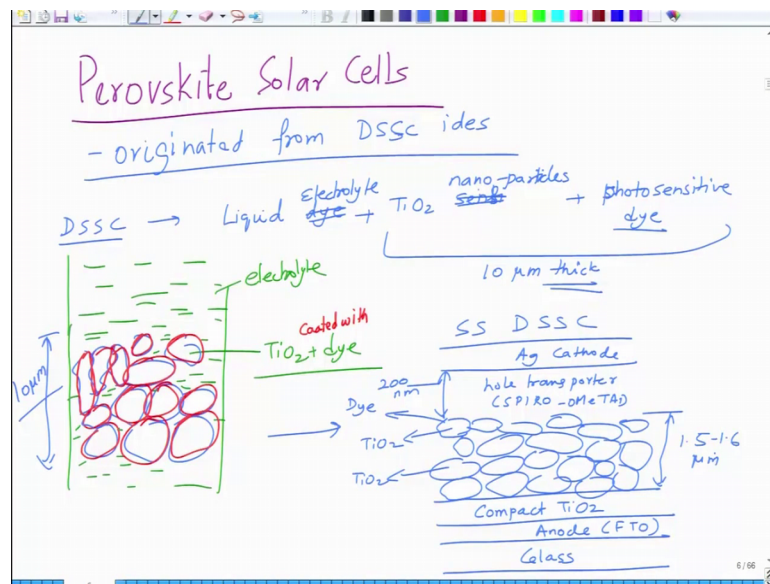 Perovskite Solar Cells
- originated from DSSC ides
DSSC → Liquid dye Electrolyte + TiO2 nano-particles + photosensitive dye
10 μm thick
electrolyte
Coated with
TiO2 + dye
10 μm
SS DSSC
Ag Cathode
200 nm
hole transporter
(SPIRO-OMeTAD)
Dye
TiO2
TiO2
1.5-1.6
μm
Compact TiO2
Anode (FTO)
Glass
6/66